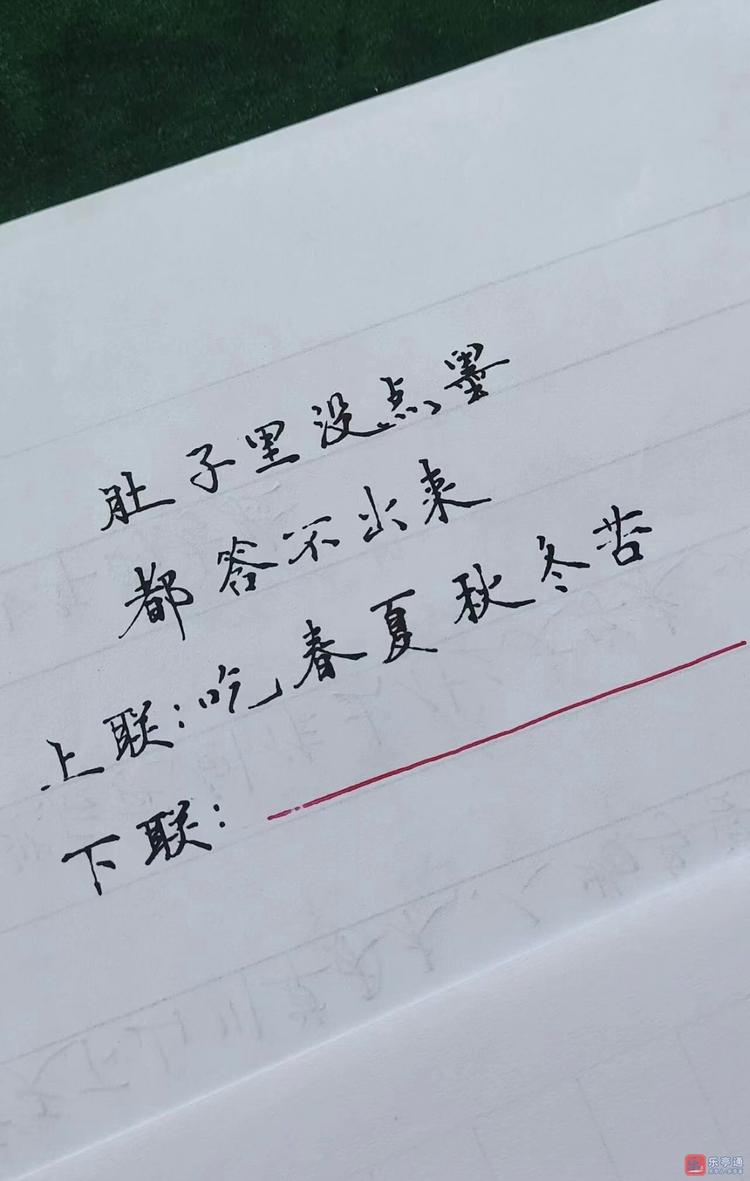 肚子里没点墨
都答不出来
上联:吃春夏秋冬苦
下联:
乐亭通